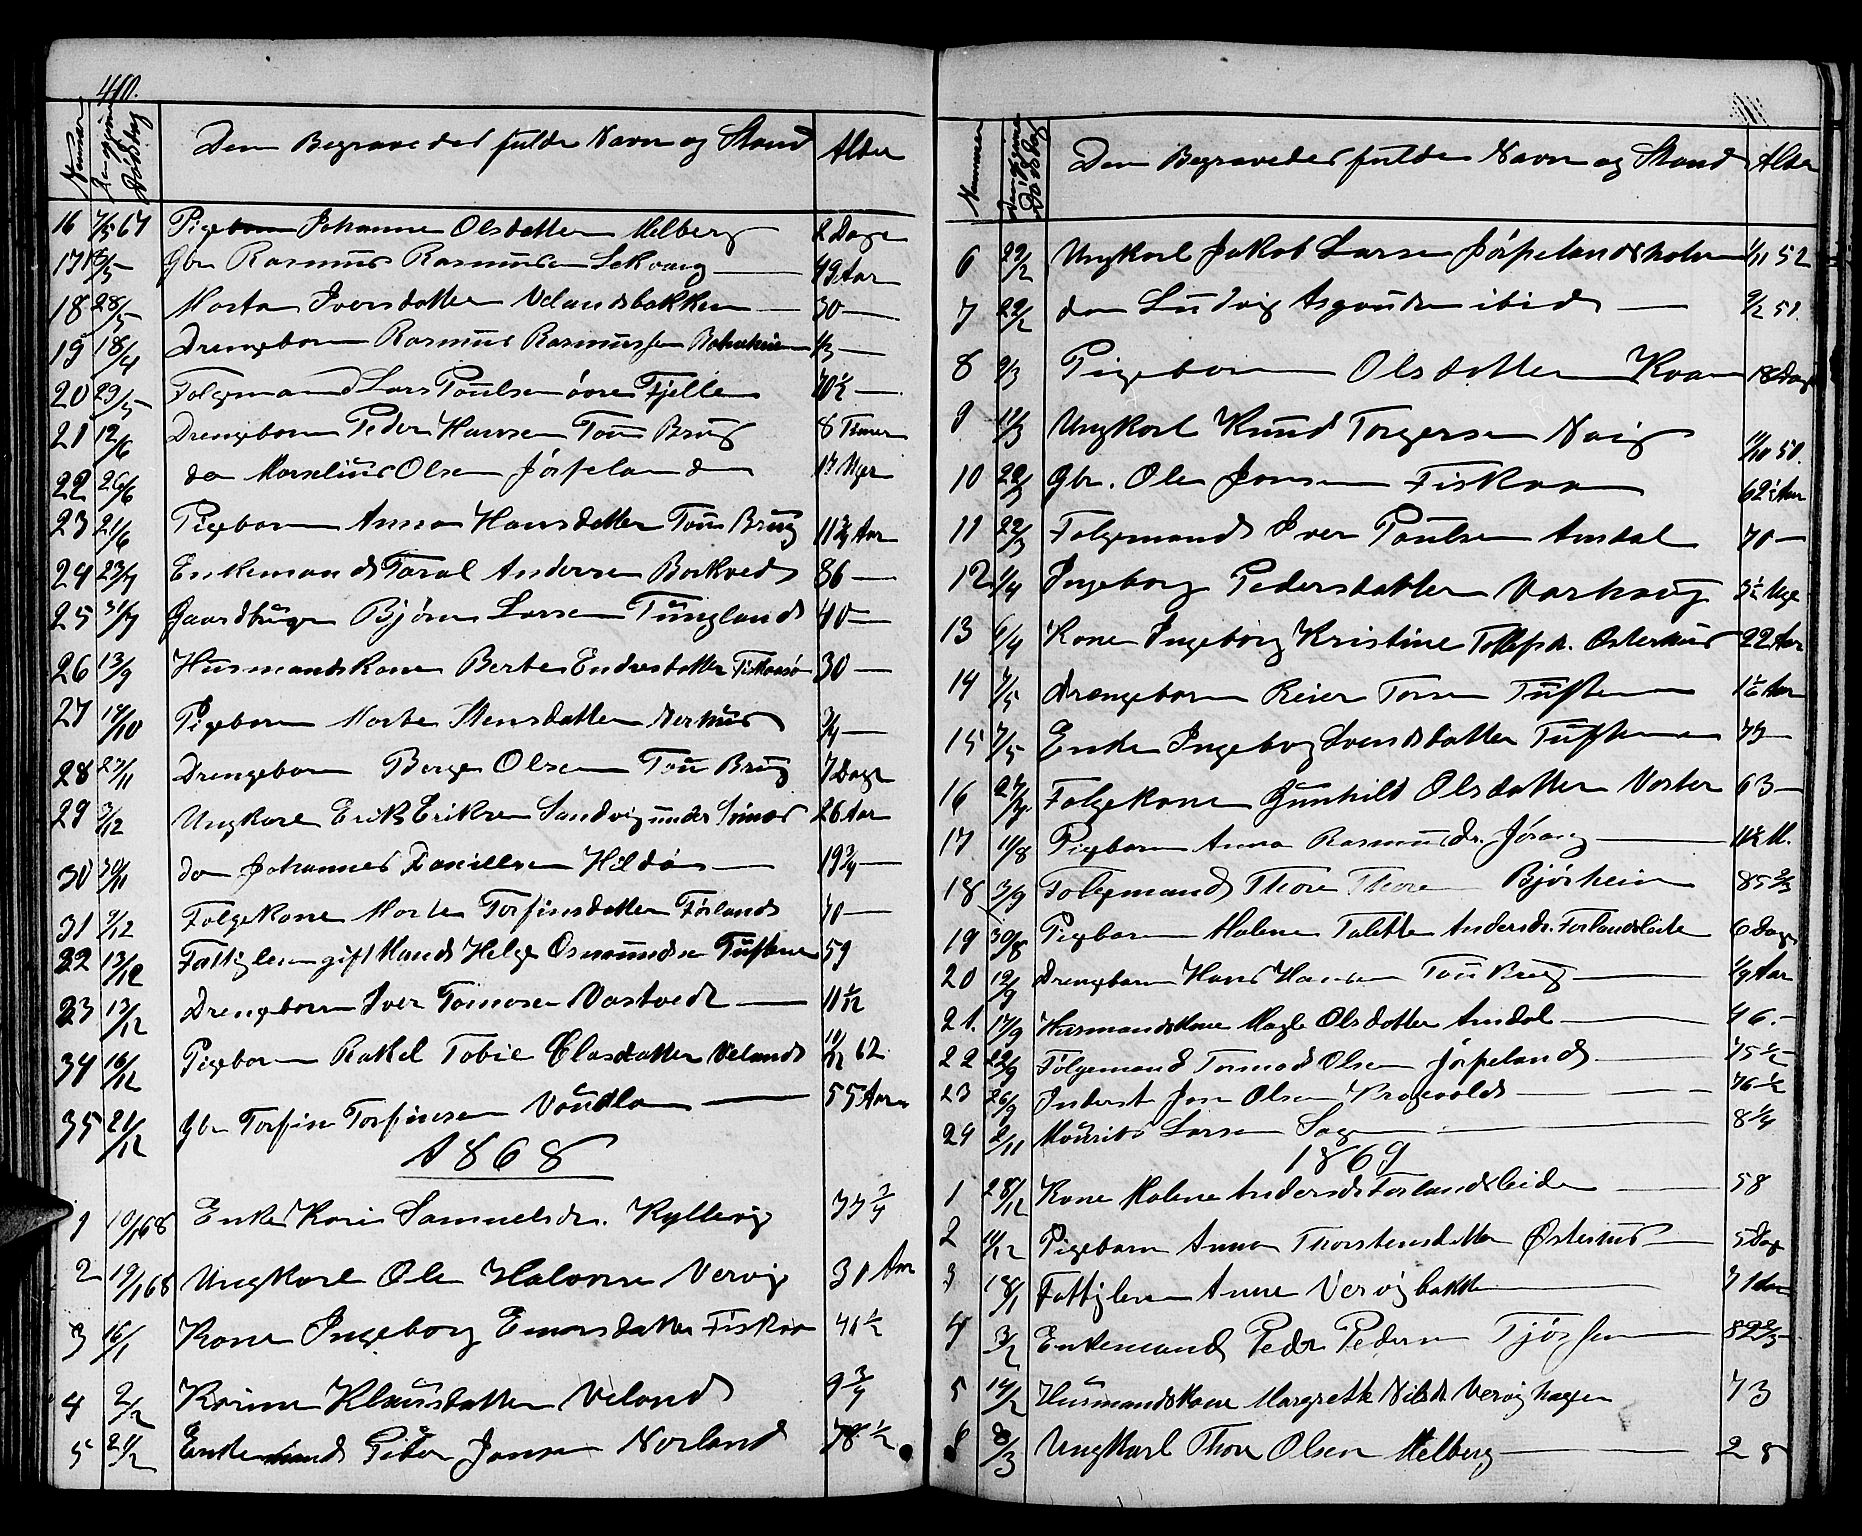 410.
Nummer Dødsdag Den Begravedes fulde Navn og Stand Alder
16 7/5 67 Pigebarn Johanne Olsdatter Melberg 2 Dage
17 Gbr Rasmus Rasmussen Lekvang 49 Aar
18 28/5 Marta Iversdatter Velandsbakken 30 —
19 18/4 Drengebarn Rasmus Rasmussen 1/3 —
20 29/5 Folgemand Lars Poulsen øvre Fjelle 70 1/2 —
21 12/6 Drengebarn Peder Hansen Tou Brug 8 Timer
22 26/6 do Marselius Olsen Jørpeland 17 Uger
23 21/6 Pigebarn Anna Hansdatter Tou Brug 11 3/4 Aar
24 23/7 Enkemand Taral Andersen Barkved 86 —
25 31/7 Gaardbruger Bjørn Larsen Tungland 40 —
26 13/9 Husmandskone Berte Endresdatter Fiskaasø 30 —
27 14/10 Pigebarn Marte Stensdatter Nerhus 3/4 —
28 27/11 Drengebarn Berge Olsen Tou Brug 7 Dage
29 3/12 Ungkarl Erik Eriksen Sandvig under 26 Aar
30 30/11 do Johannes Danielsen Hildøi 19 3/4 —
31 9/12 Folgekone Marte Torfinsdatter Førland 70 —
32 13/12 Fattiglem gift Mand Helge Osmundsen Tuften 59
33 13/12 Drengebarn Iver Tomosen Vastvedt — 11 1/12
34 16/12 Pigebarn Rakel Tobie Olasdatter Veland 11/12 62
35 21/12 Gbr Torfin Torfinsen Voudla — 55 Aar
1868
1 10/1 68 Enke Kari Samuelsdr. Kyllevig 77 3/4
2 19/1 68 Ungkarl Ole Halvorsen Vervig 31 Aar
3 16/1 Kone Ingeborg Einarsdatter Fiskaa 41 1/2
4 2/2 Karine Klausdatter Veland 9 3/4
5 21/2 Enkemand Peder Jansen Norland 78 1/2
Nummer Dødsdag Den Begravedes fulde Navn og Stand Alder
6 22/2 Ungkarl Jakob Larsen Jørpelandsholm 1/11 52
7 22/2 do Ludvig Asgoutsen ibid — 9/2 51.
8 2/3 Pigebarn Olsdatter Kvam 18 Dage
9 14/3 Ungkarl Knud Torgersen Naig 11/10 50.
10 22/3 Gbr. Ole Jonsen Fiskaa 62 1/2 Aar
11 22/3 Folgemand Iver Poulsen Amdal 70 —
12 1/4 Ingeborg Pedersdatter Varhaug 3 1/2 Uge
13 6/4 Kone Ingeborg Kristine Tollefsd. Østerhus 22 Aar
14 4/5 Drengebarn Reier Torsen Tuften 1 1/6 Aar
15 7/5 Enke Ingeborg Svendsdatter Tuften 73
16 27/7 Folgekone Gunhild Olsdatter Voster 63 —
17 11/8 Pigebarn Anna Rasmusdr. Jøraas — 11 1/2 M.
18 3/9 Folgemand Thore Thorsen Bjørheim 85 2/3
19 30/8 Pigebarn Malene Talette Andersdr. Førlandsleite 6 Dage
20 12/9 Drengebarn Hans Hansen Tou Brug — 1/9 Aar
21. 17/9 Husmandskone Magle Olsdatter Amdal — 46. —
22 22/9 Folgemand Tormod Olsen Jørpeland — 75 1/2
23 26/9 Inderst Jon Olsen Kragevold — 76 1/2
24 2/11 Mourits Larsen Sage 8 1/4
1869
1 28/12 Kone Malene Andersdr Førlandsleide — 58
2 11/12 Pigebarn Anna Thorstensdatter Østerhus — 5 Dag
3 18/1 Fattiglem Anne Vervigbakken — 71 Aar
4 3/2 Enkemand Peder Pedersen Tjøstem — 82 2/3
5 14/2 Husmandskone Margrethe Nilsdr Vervighagen 73
6 8/3 Ungkarl Thore Olsen Melberg — 28